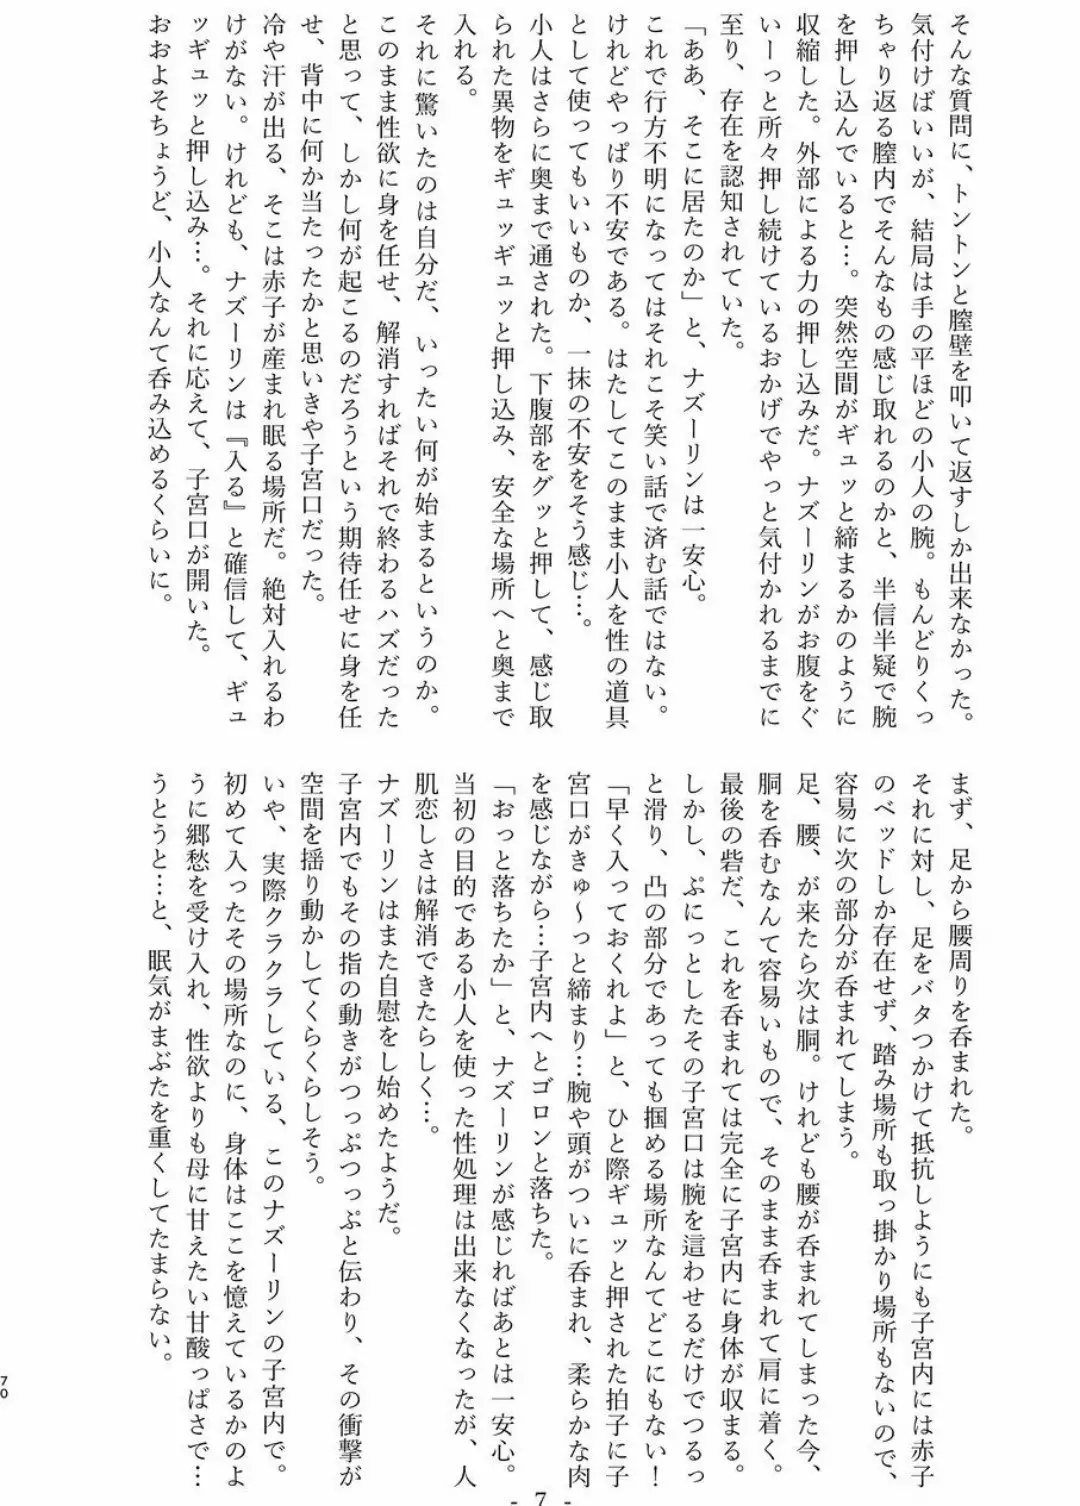 そんな質問に、トントンと膣壁を叩いて返すしか出来なかった。
気付けばいいが、結局は手の平ほどの小人の腕。もんどりくっ
ちゃり返る膣内でそんなもの感じ取れるのかと、半信半疑で腕
を押し込んでいると…。突然空間がギュッと締まるかのように
収縮した。外部による力の押し込みだ。ナズーリンがお腹をぐ
いーっと所々押し続けているおかげでやっと気付かれるまでに
至り、存在を認知されていた。
「ああ、そこに居たのか」と、ナズーリンは一安心。
これで行方不明になってはそれこそ笑い話で済む話ではない。
けれどやっぱり不安である。はたしてこのまま小人を性の道具
として使ってもいいものか、一抹の不安をそう感じ…。
小人はさらに奥まで通された。下腹部をグッと押して、感じ取
られた異物をギュッギュッと押し込み、安全な場所へと奥まで
入れる。
それに驚いたのは自分だ、いったい何が始まるというのか。
このまま性欲に身を任せ、解消すればそれで終わるハズだった
と思って、しかし何が起こるのだろうという期待任せに身を任
せ、背中に何か当たったかと思いきや子宮口だった。
冷や汗が出る、そこは赤子が産まれ眠る場所だ。絶対入れるわ
けがない。けれども、ナズーリンは『入る』と確信して、ギュ
ッギュッと押し込み…。それに応えて、子宮口が開いた。
おおよそちょうど、小人なんて呑み込めるくらいに。
まず、足から腰周りを呑まれた。
それに対し、足をバタつかけて抵抗しようにも子宮内には赤子
のベッドしか存在せず、踏み場所も取っ掛かり場所もないので、
容易に次の部分が呑まれてしまう。
足、腰、が来たら次は胴。けれども腰が呑まれてしまった今、
胴を呑むなんて容易いもので、そのまま呑まれて肩に着く。
最後の砦だ、これを呑まれては完全に子宮内に身体が収まる。
しかし、ぷにっとしたその子宮口は腕を這わせるだけでつるっ
と滑り、凸の部分であっても掴める場所なんてどこにもない！
「早く入っておくれよ」と、ひと際ギュッと押された拍子に子
宮口がきゅ～っと締まり…腕や頭がついに呑まれ、柔らかな肉
を感じながら…子宮内へとゴロンと落ちた。
「おっと落ちたか」と、ナズーリンが感じればあとは一安心。
当初の目的である小人を使った性処理は出来なくなったが、人
肌恋しさは解消できたらしく…。
ナズーリンはまた自慰をし始めたようだ。
子宮内でもその指の動きがつっぷつっぷと伝わり、その衝撃が
空間を揺り動かしてくらくらしそう。
いや、実際クラクラしている、このナズーリンの子宮内で。
初めて入ったその場所なのに、身体はここを憶えているかのよ
うに郷愁を受け入れ、性欲よりも母に甘えたい甘酸っぱさで…
うとうと…と、眠気がまぶたを重くしてたまらない。
70
- 7 -